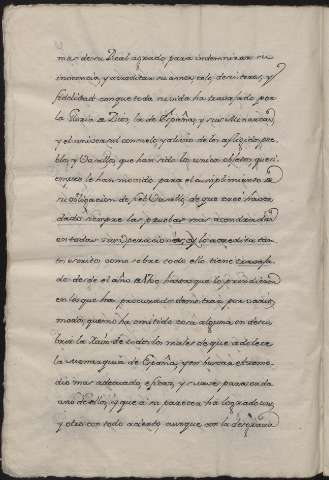 mas de su Real agrado para indemnizar su
inocencia, y acreditar su amor, celo, desinteres, y
fidelidad con que toda su vida ha travajado por
la Gloria de Dios, la de España, y sus Monarcas
y el universal consuelo y alivio de los afligidos pue-
blos, y Vasallos, que han sido los unicos objetos que si-
empre le han movido para el cumplimiento de
su obligacion de fiel Vasallo de que cree haver
dado siempre las pruebas mas acendradas
en todas sus operaciones, y lo acredita tan-
to escrito como sobre todo ello tiene travaja-
do desde el año de hasta que lo prendieron
en los que ha procurado demostrar por varios
modos, que no ha omitido cosa alguna en descu-
brir la raiz de todos los males de que adolece
la Monarquia de España, y en buscar el reme-
dio mas adecuado, eficaz, y suave para cada
uno de ellos, y que a su parecer ha logrado uno,
y otro con todo acierto aunque con la desgracia